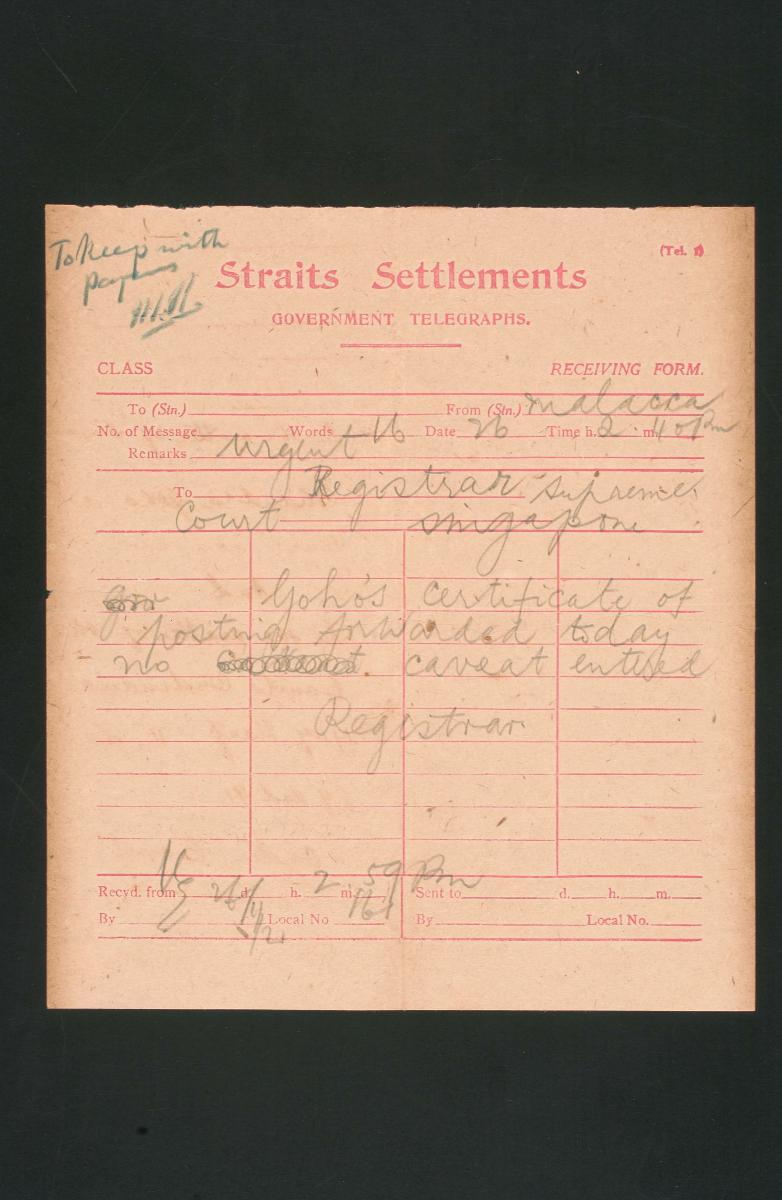 To keep with
papers
(Tel. 1)
Straits Settlements
GOVERNMENT TELEGRAPHS.
CLASS RECEIVING FORM.
To (Stn.) From (Stn.) Malacca
No. of Message Words 16 Date 26 Time h. 2 m. 40 Pm
Remarks urgent
To Registrar Supreme
Court Singapore
Goho's certificate of
posting forwarded today
no caveat entered
Registrar
Recyd. from d. 26/ h. 2 m. 59 Pm Sent to d. h. m.
By Local No 161 By Local No.